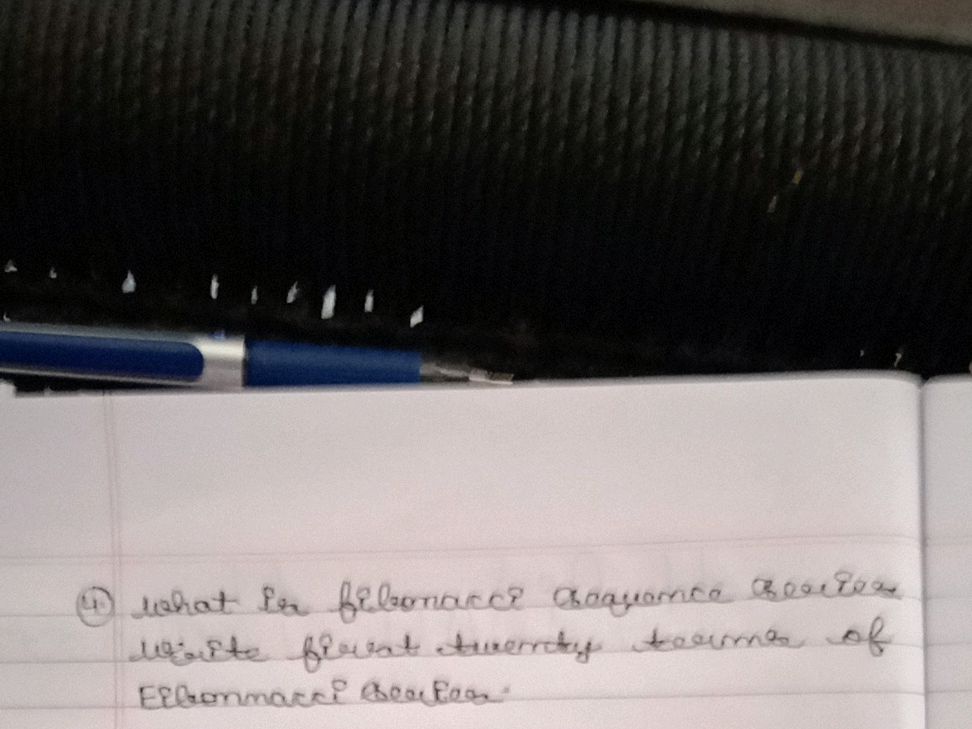 ④ what is fibonacci sequence series
write first twenty terms of
Fibonnacci series.